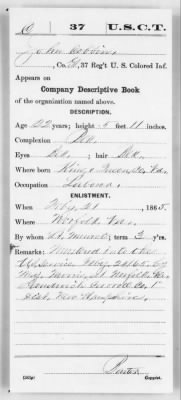 37 U.S.C.T.
John
, Co. , 37 Reg't U. S. Colored Inf.
Appears on
Company Descriptive Book
of the organization named above.
DESCRIPTION.
Age 22 years; height 5 feet 11 inches.
Complexion Blk.
Eyes Blk.; hair Blk.
Where born King & Queen Co. Va.
Occupation Laborer.
ENLISTMENT.
When Feby. 21, 1865.
Where Norfolk, Va.
By whom Lt. ; term 3 y'rs.
Remarks: Mustered into the
U.S. Service Feby. 21/65. by
Norfolk Va.
Co.
New Hampshire.
Copyist.